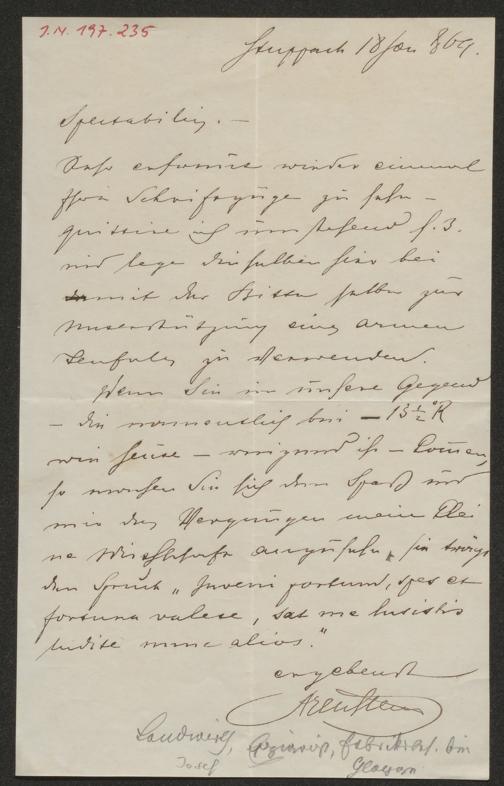 J.N. 197.235
Stuppach 18 Jän 869.
Spectabilis. —
Sehr erfreut wieder einmal
Ihre Schriftzüge zu sehen —
quittire ich umstehend f. 3.
und lege dieselben hier bei
mit der Bitte selbe zur
Unterstützung eines armen
Teufels zu verwenden.
Wenn Sie in unsere Gegend
— die namentlich bei — 13 1/2 °R
wie heute — reizend ist — kommen,
so machen Sie sich den Spaß und
mir das Vergnügen meine klei
ne Wirthschaft anzusehen, sie trägt
den Spruch „Inveni portum, spes et
fortuna valete, sat me lusistis
ludite nunc alios."
ergebenst
Arenstein
Landwirth, Fabriksbes.
Josef